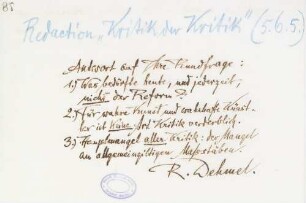 85
Redaction „Kritik der Kritik" (5.6.5.)
Antwort auf Ihre Rundfrage:
1.) Was bedürfte heute, und jederzeit,
nicht der Reform?
2.) Für wahre Kunst und wahrhafte Künst-
ler ist keine Art Kritik verderblich.
3.) Hauptmangel aller Kritik: der Mangel
an allgemeingültigen Maßstäben.
R. Dehmel.